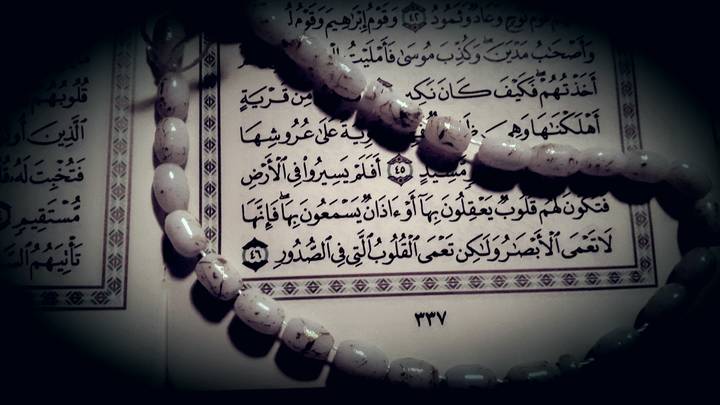 قَوْمُ نُوحٍ وَعَادٌ وَثَمُودُ ٤٢ وَقَوْمُ إِبْرَٰهِيمَ وَقَوْمُ
وَأَصْحَٰبُ مَدْيَنَ ۖ وَكُذِّبَ مُوسَىٰ فَأَمْلَيْتُ
أَخَذْتُهُمْ ۖ فَكَيْفَ كَانَ نَكِ مِّن قَرْيَةٍ
أَهْلَكْنَٰهَا وَهِىَ وِيَةٌ عَلَىٰ عُرُوشِهَا
مَّشِيدٍ ٤٥ أَفَلَمْ يَسِيرُوا۟ فِى ٱلْأَرْضِ
فَتَكُونَ لَهُمْ قُلُوبٌ يَعْقِلُونَ بِهَآ أَوْ ءَاذَانٌ يَسْمَعُونَ بِهَا ۖ فَإِنَّهَا
لَا تَعْمَى ٱلْأَبْصَٰرُ وَلَٰكِن تَعْمَى ٱلْقُلُوبُ ٱلَّتِى فِى ٱلصُّدُورِ ٤٦
٣٣٧
قُلُوبُهُمْ
ٱلَّذِينَ أُو
فَتُخْبِتَ لَهُۥ
مُّسْتَقِيمٍ
تَأْتِيَهُمُ ٱلسَّ